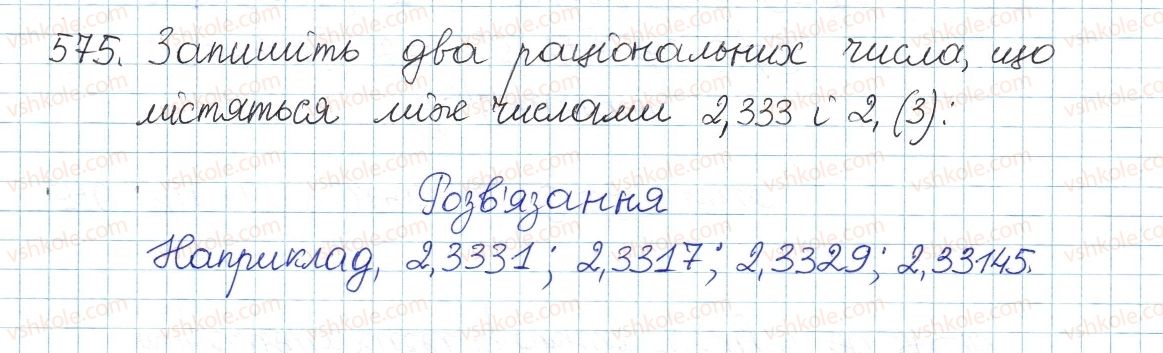 575. Запишіть два раціональних числа, що
містяться між числами 2,333 і 2,(3):
Розв'язання
Наприклад, 2,3331; 2,3317; 2,3329; 2,33145.